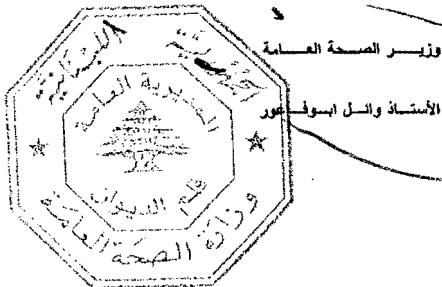 وزيـــر الصـــحة العـــامـة
الأستــاذ وائــل ابــوفــاعور
الجمهورية اللبنانية
المديرية العامة
قلم الديوان
وزارة الصحة العامة